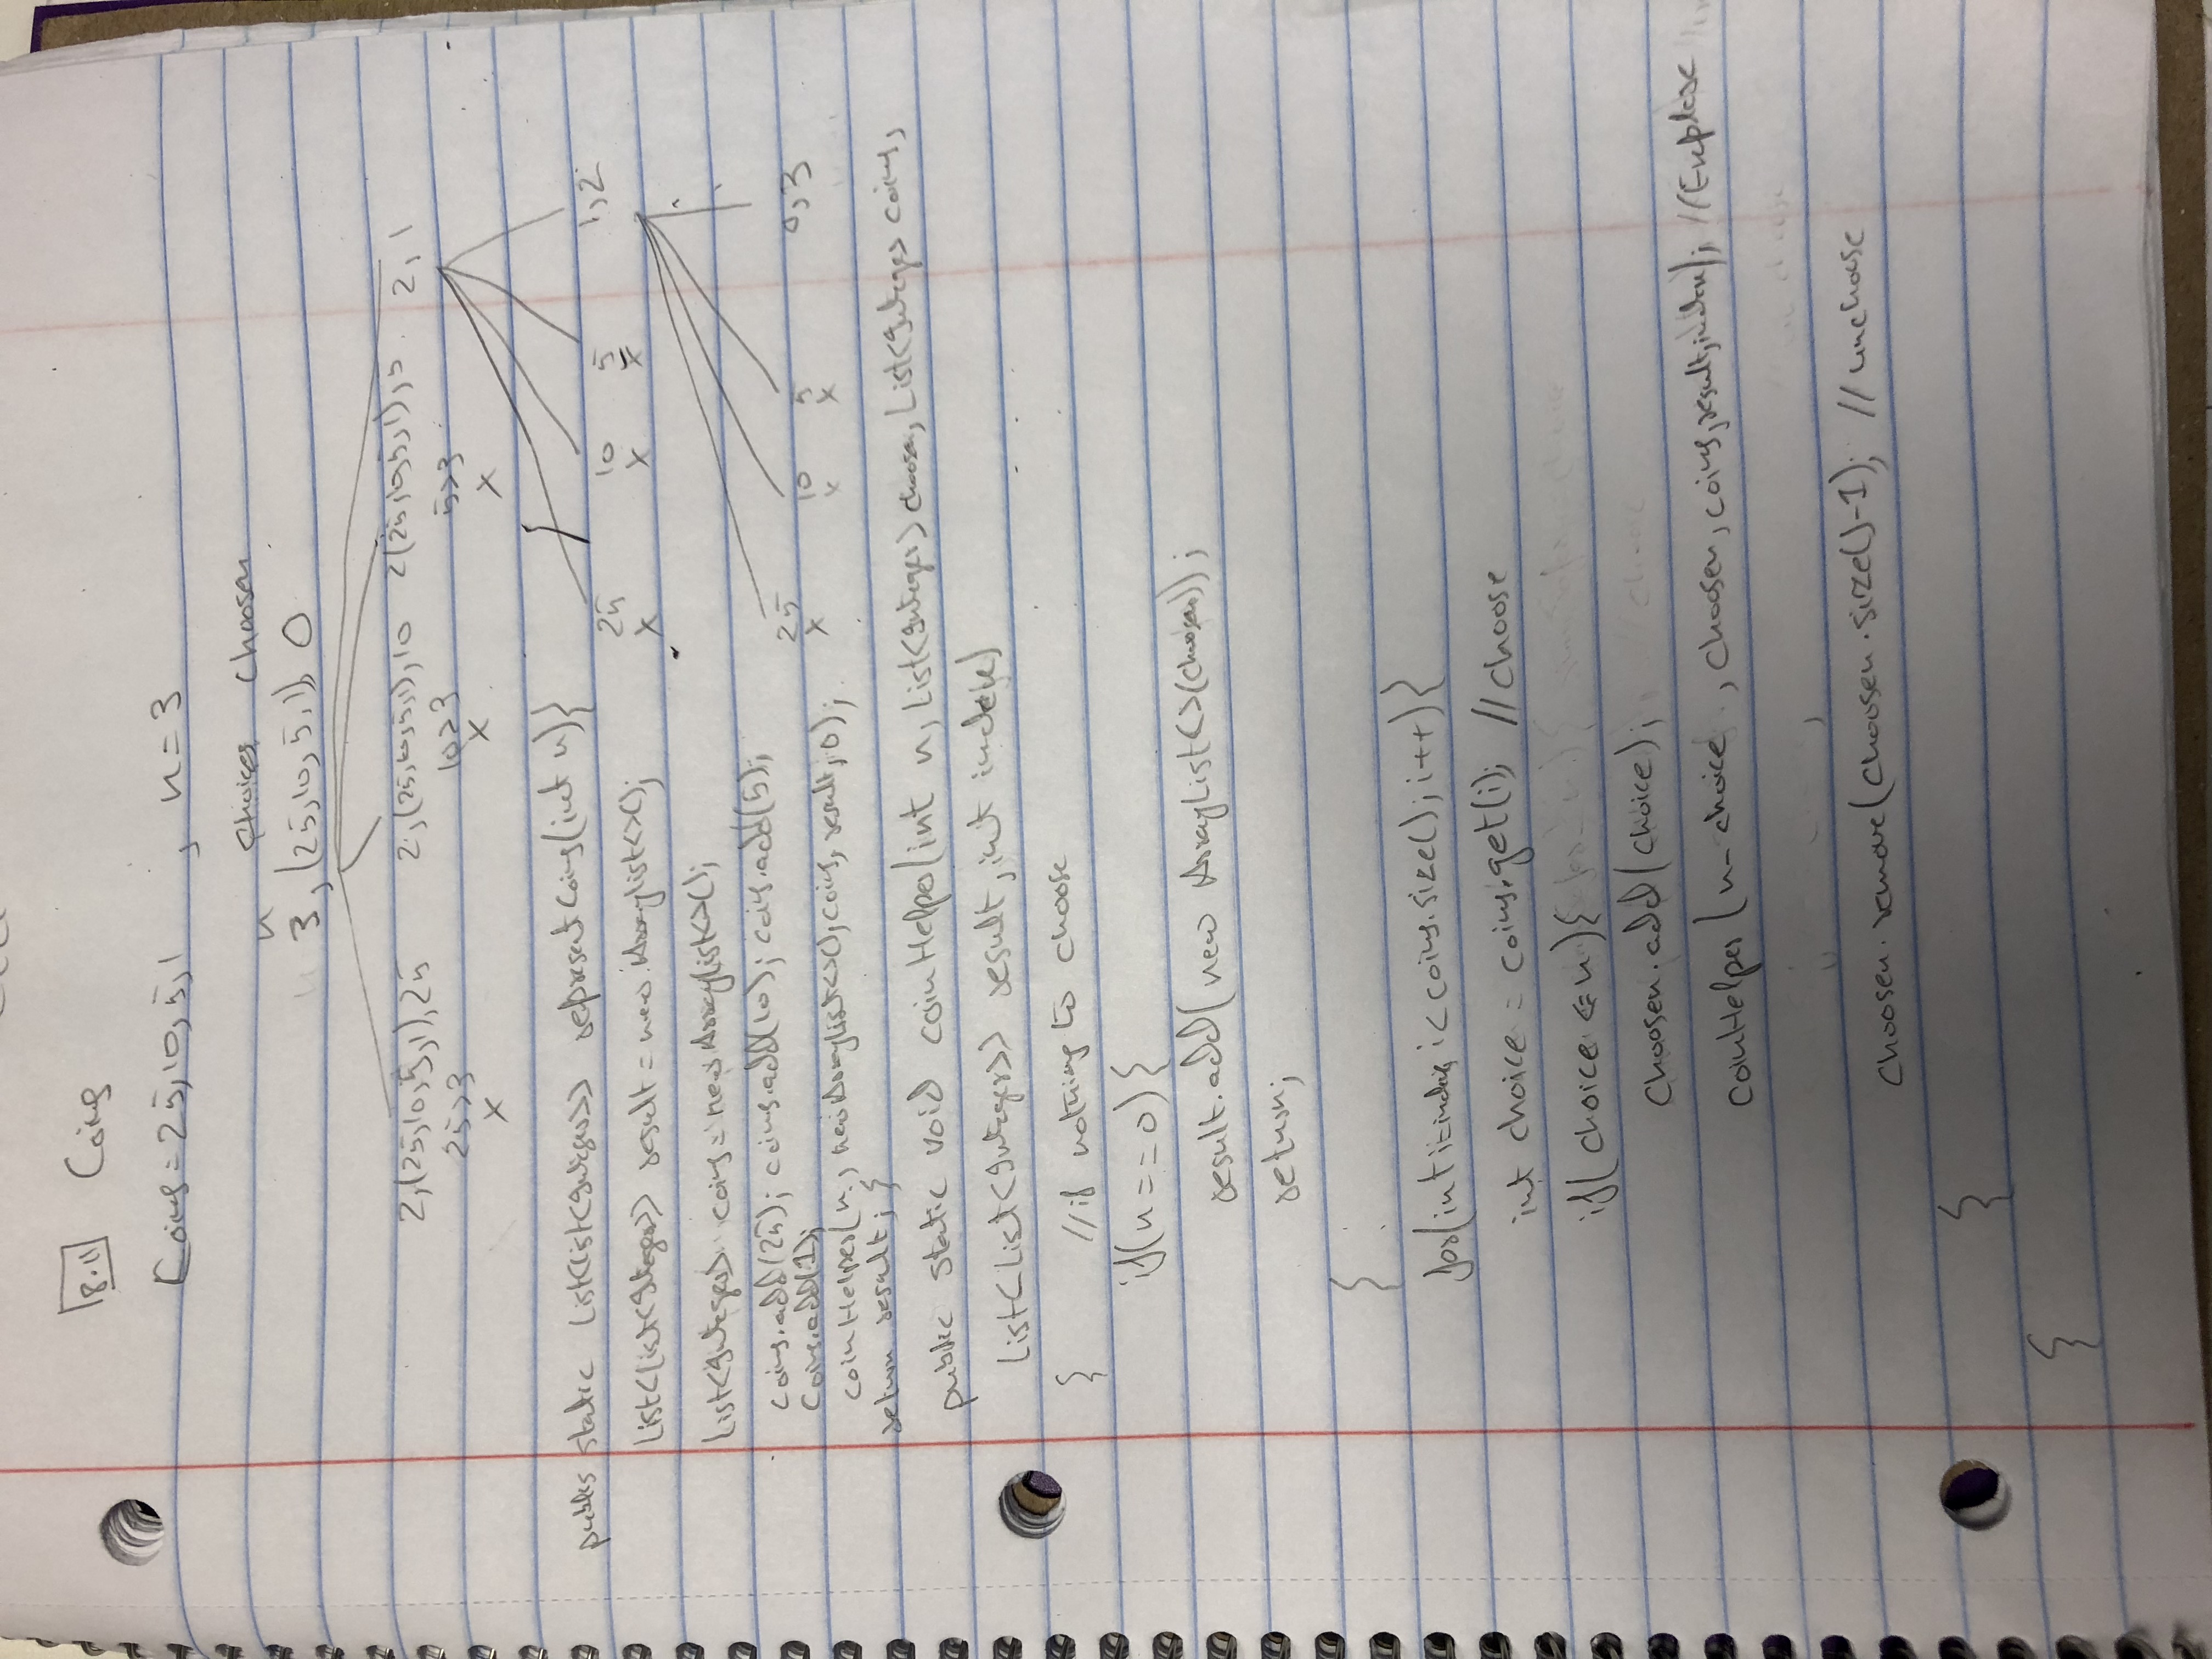 8.11 Coins
Coins = 25, 10, 5, 1 , n = 3
n choices choosen
3, (25, 10, 5, 1), 0
2, (25, 10, 5, 1), 25 2, (25, 10, 5, 1), 10 2 (25, 10, 5, 1), 5 2, 1
25 > 3 10 > 3 5 > 3
X X X
public static List<List<Integer>> representCoins(int n){
25 10 5 1, 2
X X X
List<List<Integer>> result = new ArrayList<>();
List<Integer> coins = new ArrayList<>();
coins.add(25); coins.add(10); coins.add(5);
25 10 5 0, 3
X X X
Coins.add(1);
coinHelper(n, new ArrayList<>(), coins, result, 0);
return result; }
public static void coinHelper(int n, List<Integer> choosen, List<Integer> coins,
List<List<Integer>> result, int index)
{ //if nothing to choose
if(n == 0){
result.add(new ArrayList<>(choosen));
return;
}
for(int i=index; i < coins.size(); i++){
int choice = coins.get(i); //choose
if(choice <= n){
Choosen.add(choice);
coinHelper(n - choice, choosen, coins, result, index); //Explore
Choosen.remove(choosen.size()-1); //unchoose
}
}